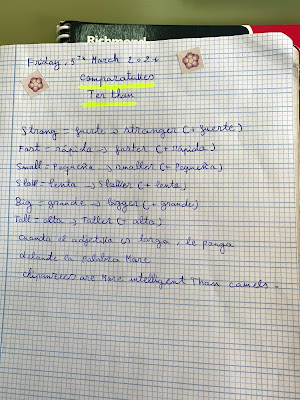 Friday, 5th March 2024
Comparatives
Ter than
Strong = fuerte → stranger (+ fuerte)
Fast = rápida → faster (+ rápida)
Small = Pequeña → smaller (+ Pequeña)
= lenta → (+ lenta)
Big = grande → bigger (+ grande)
Tall = alta → Taller (+ alta)
Cuando el adjetivo es larga, le ponga
delante la palabra More
chipanzees are More intelligent Than camels.